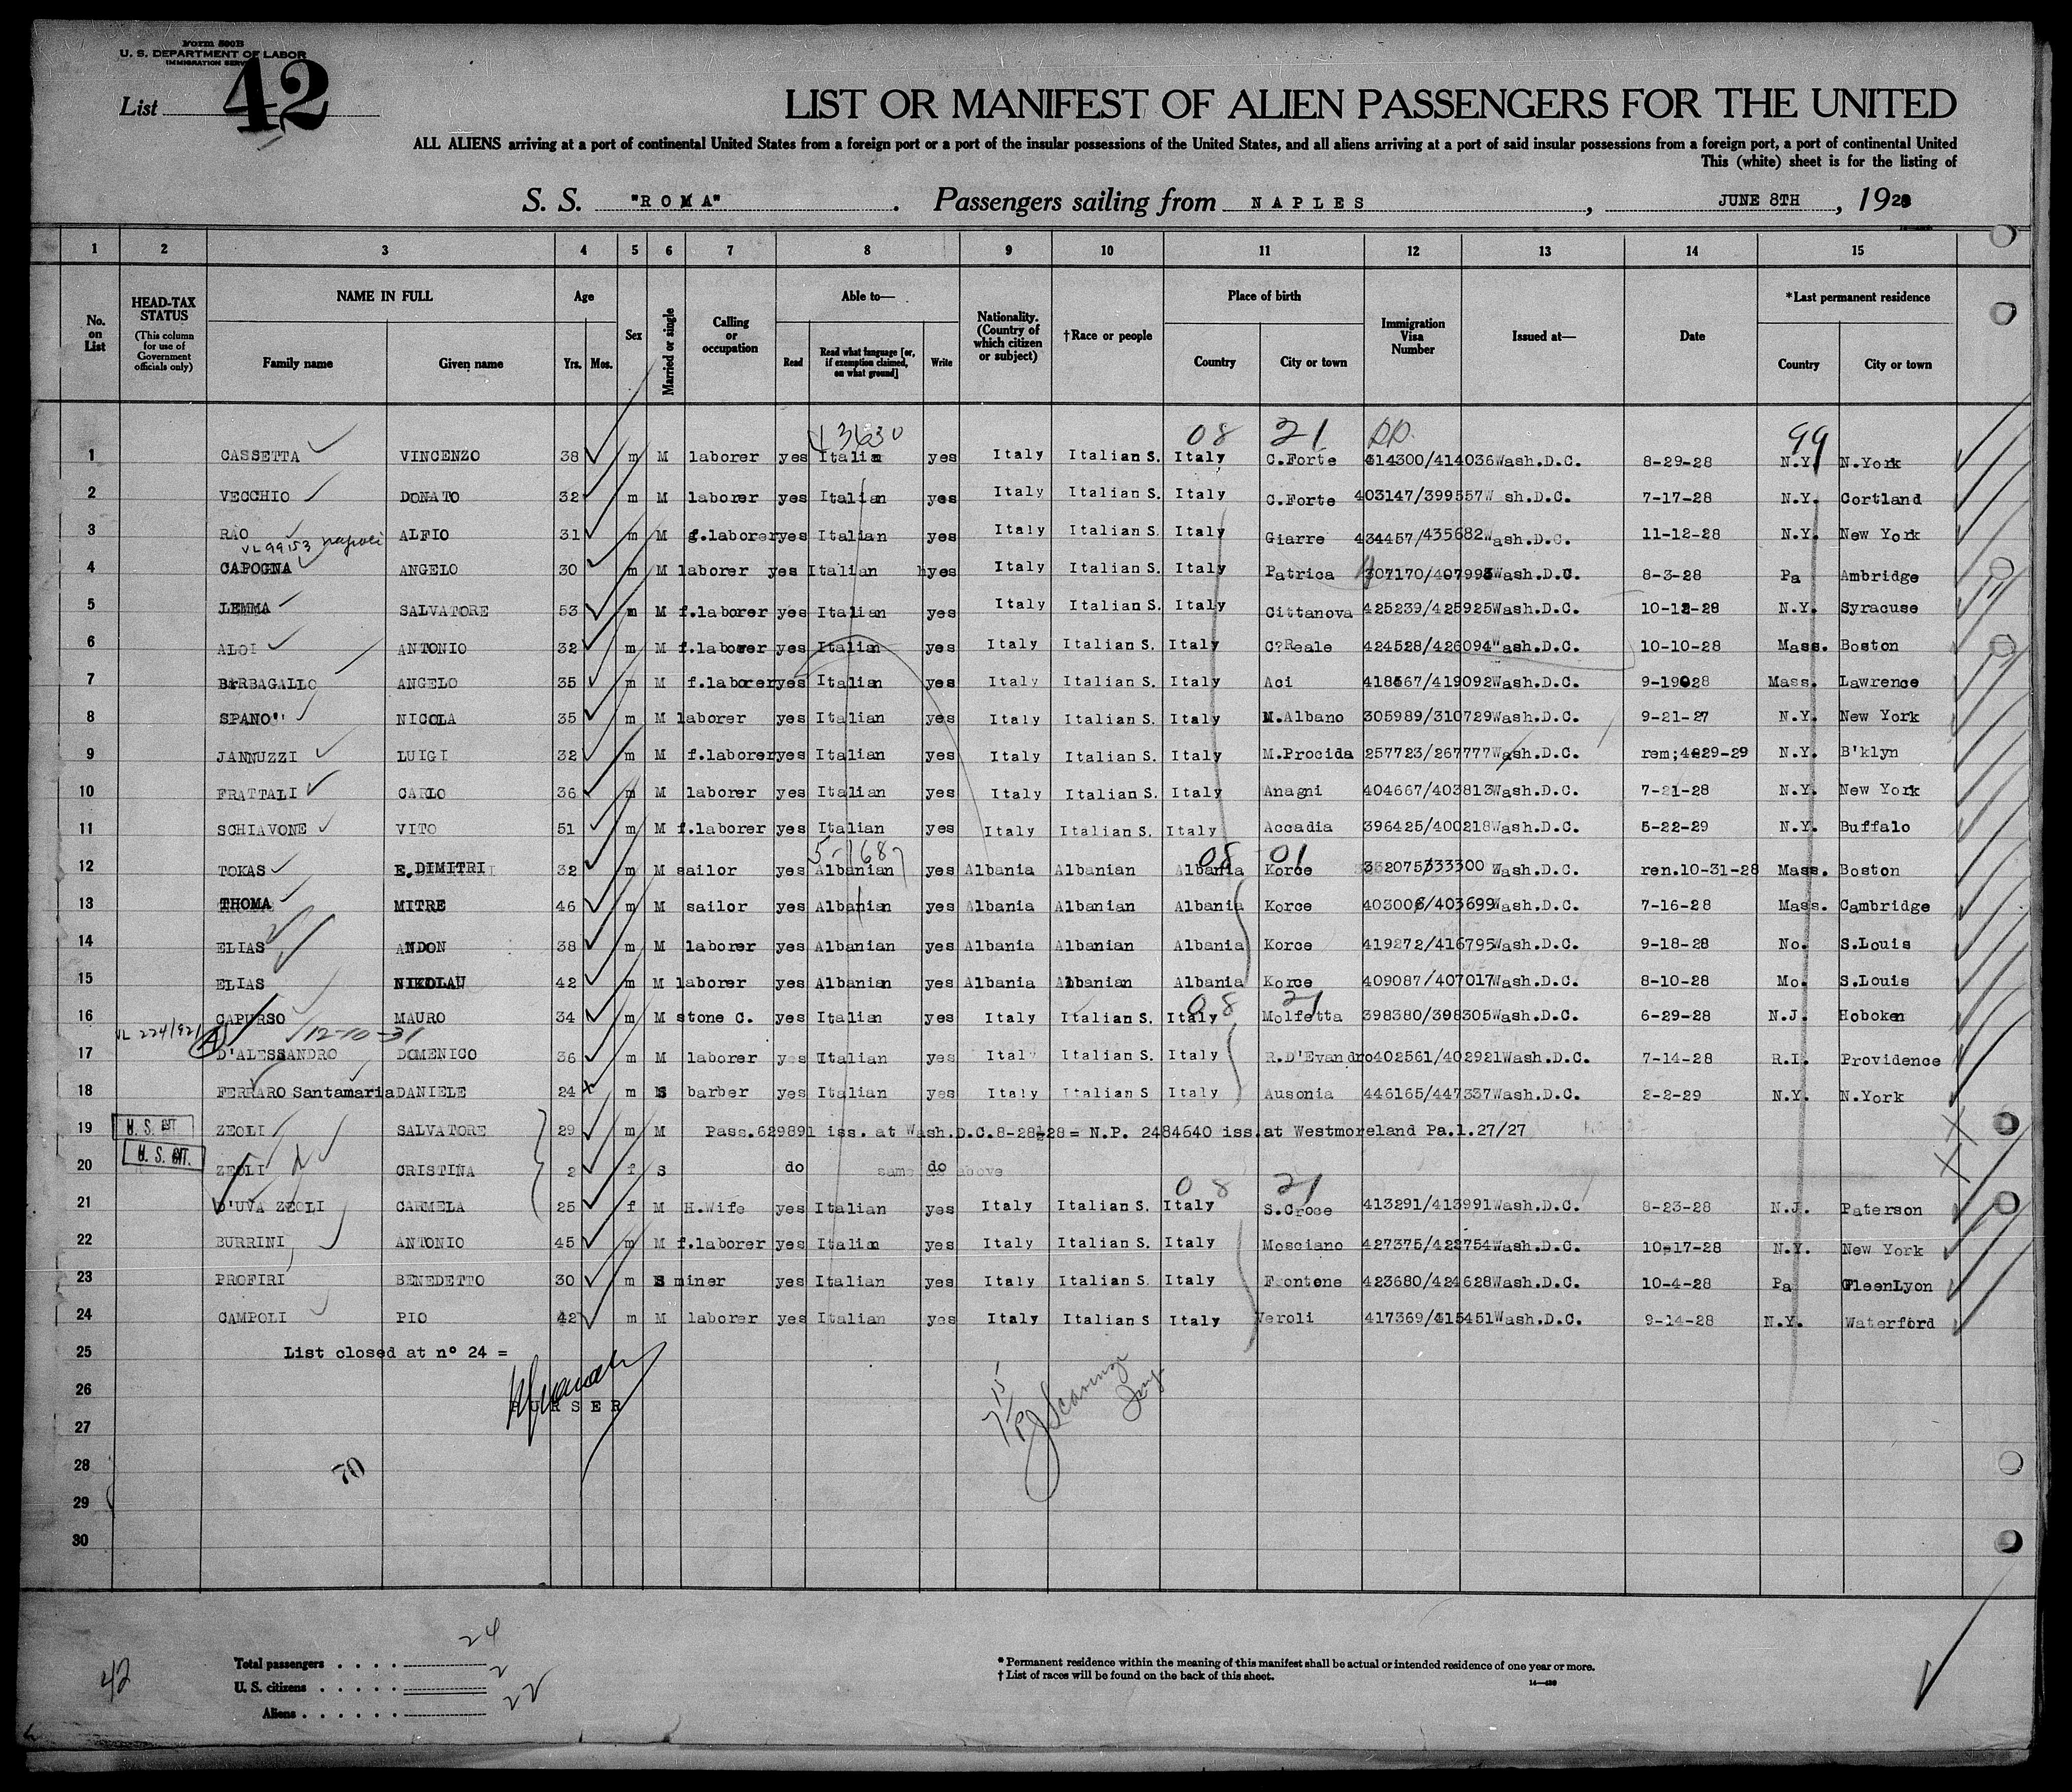 Form 500B
U. S. DEPARTMENT OF LABOR
IMMIGRATION SERVICE
List 42
LIST OR MANIFEST OF ALIEN PASSENGERS FOR THE UNITED
ALL ALIENS arriving at a port of continental United States from a foreign port or a port of the insular possessions of the United States, and all aliens arriving at a port of said insular possessions from a foreign port, a port of continental United
This (white) sheet is for the listing of
S. S. "ROMA" . Passengers sailing from NAPLES , JUNE 8TH , 1929
1 2 3 4 5 6 7 8 9 10 11 12 13 14 15
No. on List
HEAD-TAX STATUS
(This column for use of Government officials only)
NAME IN FULL
Family name Given name
Age
Yrs. Mos.
Sex
Married or single
Calling or occupation
Able to—
Read Read what language [or, if exemption claimed, on what ground] Write
Nationality. (Country of which citizen or subject)
†Race or people
Place of birth
Country City or town
Immigration Visa Number
Issued at—
Date
*Last permanent residence
Country City or town
3630 08 21 99
1 CASSETTA VINCENZO 38 m M laborer yes Italian yes Italy Italian S. Italy C.Forte 414300/414036 Wash.D.C. 8-29-28 N.Y. N.York
2 VECCHIO DONATO 32 m M laborer yes Italian yes Italy Italian S. Italy C.Forte 403147/399557 W sh.D.C. 7-17-28 N.Y. Cortland
3 RAO ALFIO 31 m M f.laborer yes Italian yes Italy Italian S. Italy Giarre 434457/435682 Wash.D.C. 11-12-28 N.Y. New York
VL 99153 Napoli
4 CAPOGNA ANGELO 30 m M laborer yes Italian yes Italy Italian S. Italy Patrica Wash.D.C. 8-3-28 Pa Ambridge
5 LEMMA SALVATORE 53 m M f.laborer yes Italian yes Italy Italian S. Italy Cittanova 425239/425925 Wash.D.C. 10-12-28 N.Y. Syracuse
6 ALOI ANTONIO 32 m M f.laborer yes Italian yes Italy Italian S. Italy C?Reale 424528/426094 Wash.D.C. 10-10-28 Mass. Boston
7 BARBAGALLO ANGELO 35 m M f.laborer yes Italian yes Italy Italian S. Italy Aci 418567/419092 Wash.D.C. 9-19-28 Mass. Lawrence
8 SPANO' NICOLA 35 m M laborer yes Italian yes Italy Italian S. Italy M.Albano 305989/310729 Wash.D.C. 9-21-27 N.Y. New York
9 JANNUZZI LUIGI 32 m M f.laborer yes Italian yes Italy Italian S. Italy M.Procida 257723/267777 Wash.D.C. rem;4-29-29 N.Y. B'klyn
10 FRATTALI CARLO 36 m M laborer yes Italian yes Italy Italian S. Italy Anagni 404667/403813 Wash.D.C. 7-21-28 N.Y. New York
11 SCHIAVONE VITO 51 m M f.laborer yes Italian yes Italy Italian S. Italy Accadia 396425/400218 Wash.D.C. 5-22-29 N.Y. Buffalo
08 01
12 TOKAS E.DIMITRI 32 m M sailor yes Albanian yes Albania Albanian Albania Korce 332075/333300 Wash.D.C. ren.10-31-28 Mass. Boston
13 THOMA MITRE 46 m M sailor yes Albanian yes Albania Albanian Albania Korce 403006/403699 Wash.D.C. 7-16-28 Mass. Cambridge
14 ELIAS ANDON 38 m M laborer yes Albanian yes Albania Albanian Albania Korce 419272/416795 Wash.D.C. 9-18-28 No. S.Louis
15 ELIAS NIKOLAU 42 m M laborer yes Albanian yes Albania Albanian Albania Korce 409087/407017 Wash.D.C. 8-10-28 Mo. S.Louis
08 21
16 CAPURSO MAURO 34 m M stone C. yes Italian yes Italy Italian S. Italy Molfetta 398380/398305 Wash.D.C. 6-29-28 N.J. Hoboken
12-10-31
17 D'ALESSANDRO DOMENICO 36 m M laborer yes Italian yes Italy Italian S. Italy R.D'Evandro 402561/402921 Wash.D.C. 7-14-28 R.I. Providence
18 FERRARO Santamaria DANIELE 24 m S barber yes Italian yes Italy Italian S Italy Ausonia 446165/447337 Wash.D.C. 2-2-29 N.Y. N.York
19 U.S. CIT ZEOLI SALVATORE 29 m M Pass.629891 iss. at Wash.D.C.8-28-28= N.P. 2484640 iss.at Westmoreland Pa.1.27/27
20 U.S. CIT. ZEOLI CRISTINA 2 f S do same as above do
08 21
21 D'UVA ZEOLI CARMELA 25 f M H.Wife yes Italian yes Italy Italian S. Italy S.Croce 413291/413991 Wash.D.C. 8-23-28 N.J. Paterson
22 BURRINI ANTONIO 45 m M f.laborer yes Italian yes Italy Italian S. Italy Mosciano 427375/422754 Wash.D.C. 10-17-28 N.Y. New York
23 PROFIRI BENEDETTO 30 m S miner yes Italian yes Italy Italian S. Italy Frontone 423680/424628 Wash.D.C. 10-4-28 Pa GleenLyon
24 CAMPOLI PIO 42 m M laborer yes Italian yes Italy Italian S Italy Veroli 417369/415451 Wash.D.C. 9-14-28 N.Y. Waterford
25 List closed at n° 24 =
26
PURSER
27
28 70
29
30
Total passengers 24
U. S. citizens 2
Aliens 22
42
* Permanent residence within the meaning of this manifest shall be actual or intended residence of one year or more.
† List of races will be found on the back of this sheet.
14—430